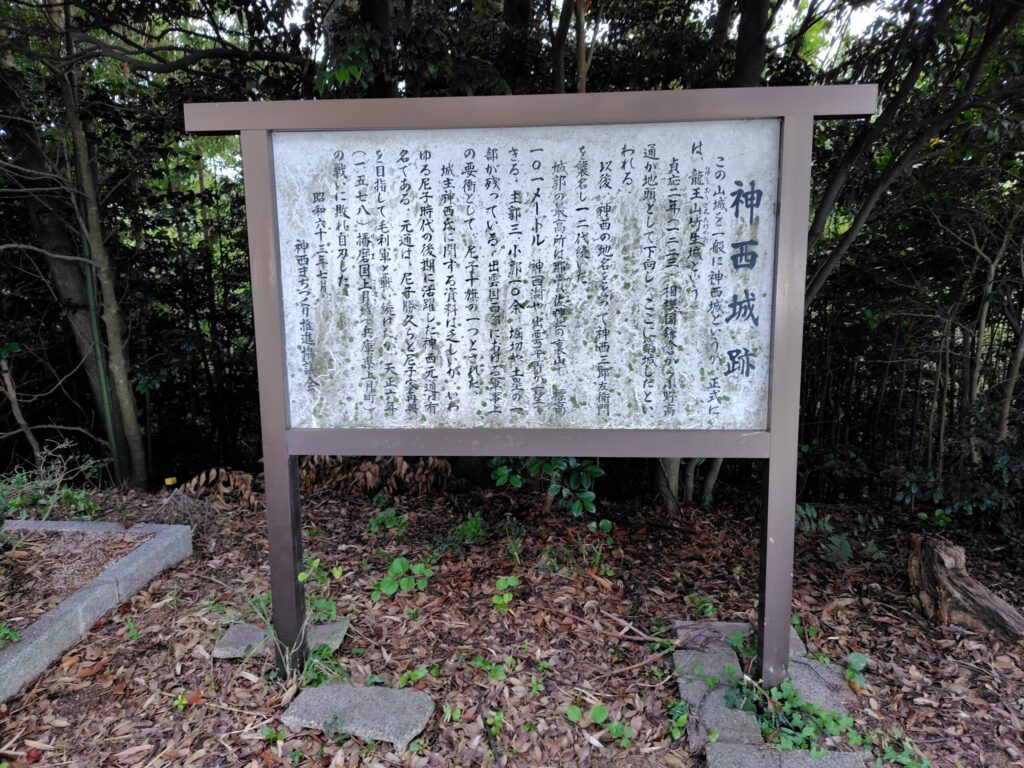 神西城跡
この山城を一般に神西城というが、正式に
は、龍王山竹生城という。
貞応二年(一二二三)相模国鎌倉から小野高
通が地頭として下向し、ここに築城したとい
われる。
以後、神西の地名をとって神西三郎左衛門
を襲名し一二代続いた。
城郭の最高所は那賣佐神社の裏山で、標高
一〇一メートル、神西湖や出雲平野が一望で
きる。主郭三、小郭一〇余、堀切や土塁の一
部が残っている。出雲国西部における軍事上
の要衝として、尼子十旗の一つとされた。
城主神西氏に関する資料は乏しいが、いわ
ゆる尼子時代の後期に活躍した神西元通は有
名である。元通は、尼子勝久らと尼子家再興
を目指して毛利軍と戦い続けたが、天正六年
(一五七八)播磨国上月城(兵庫県上月町)
の戦いに敗れ自刃した。
昭和六十三年七月
神西まちづくり推進協議会